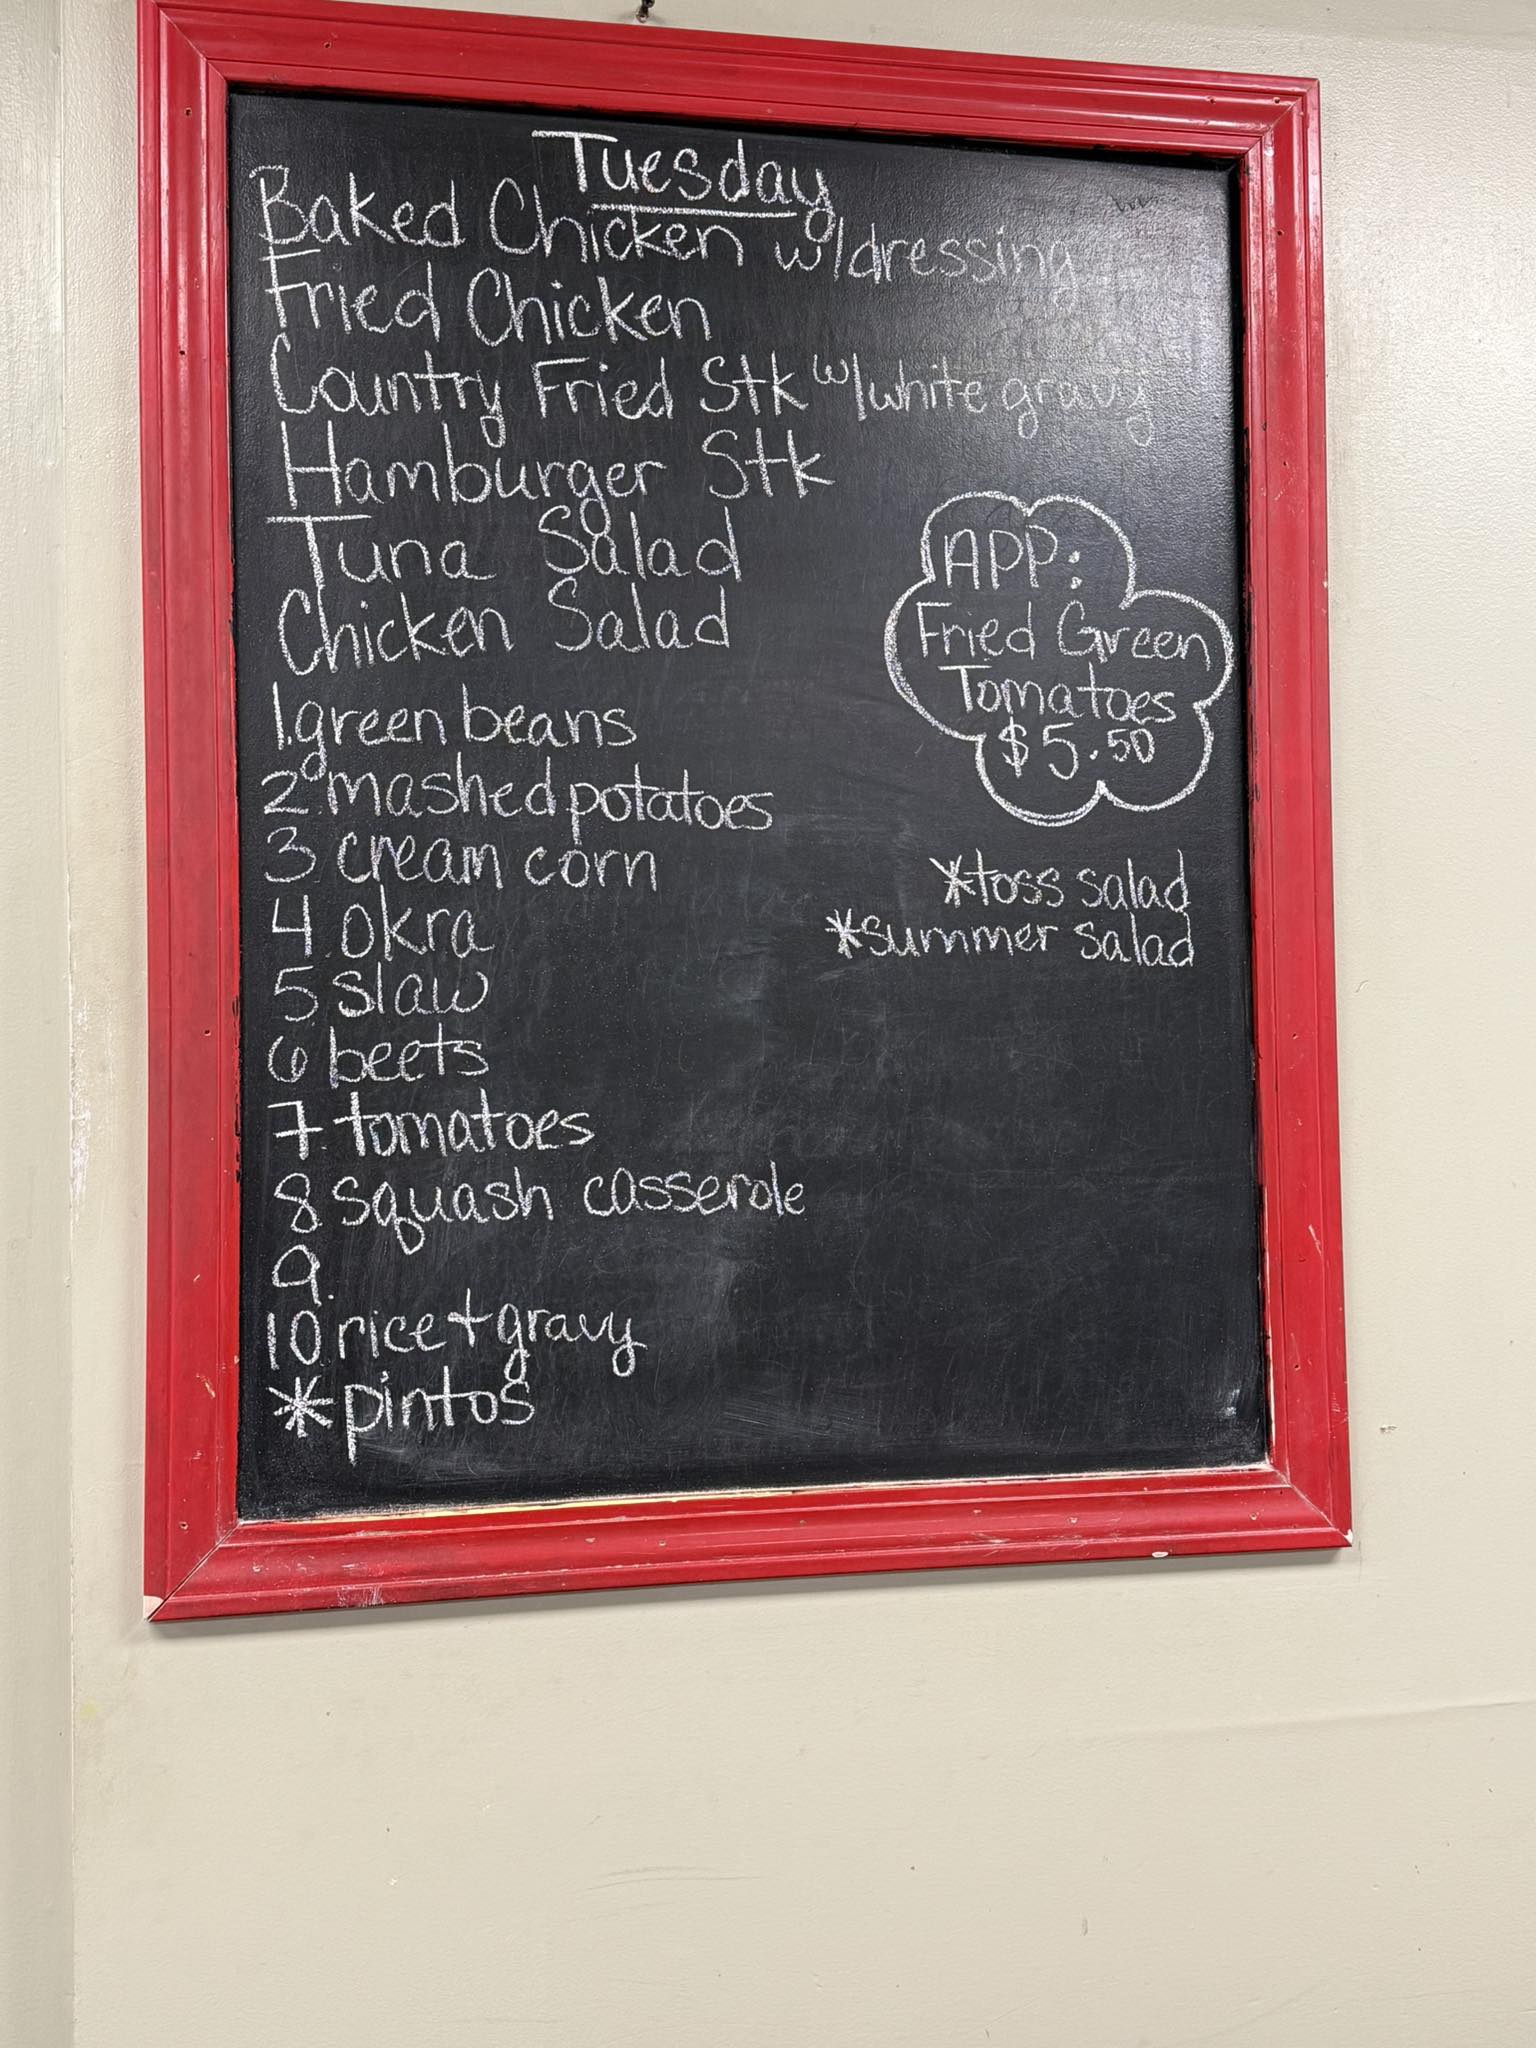 Tuesday
Baked Chicken w/dressing
Fried Chicken
Country Fried Stk w/white gravy
Hamburger Stk
Tuna Salad
Chicken Salad
1. green beans
2. mashed potatoes
3. cream corn
4. okra
5. slaw
6. beets
7. tomatoes
8. squash casserole
9.
10. rice + gravy
*pintos
APP:
Fried Green
Tomatoes
$5.50
*toss salad
*summer salad